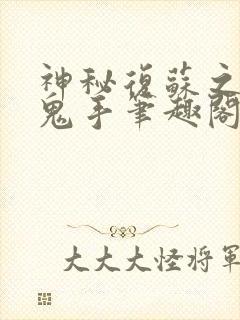 神秘復蘇之
鬼手筆趣閣
大大大怪將軍